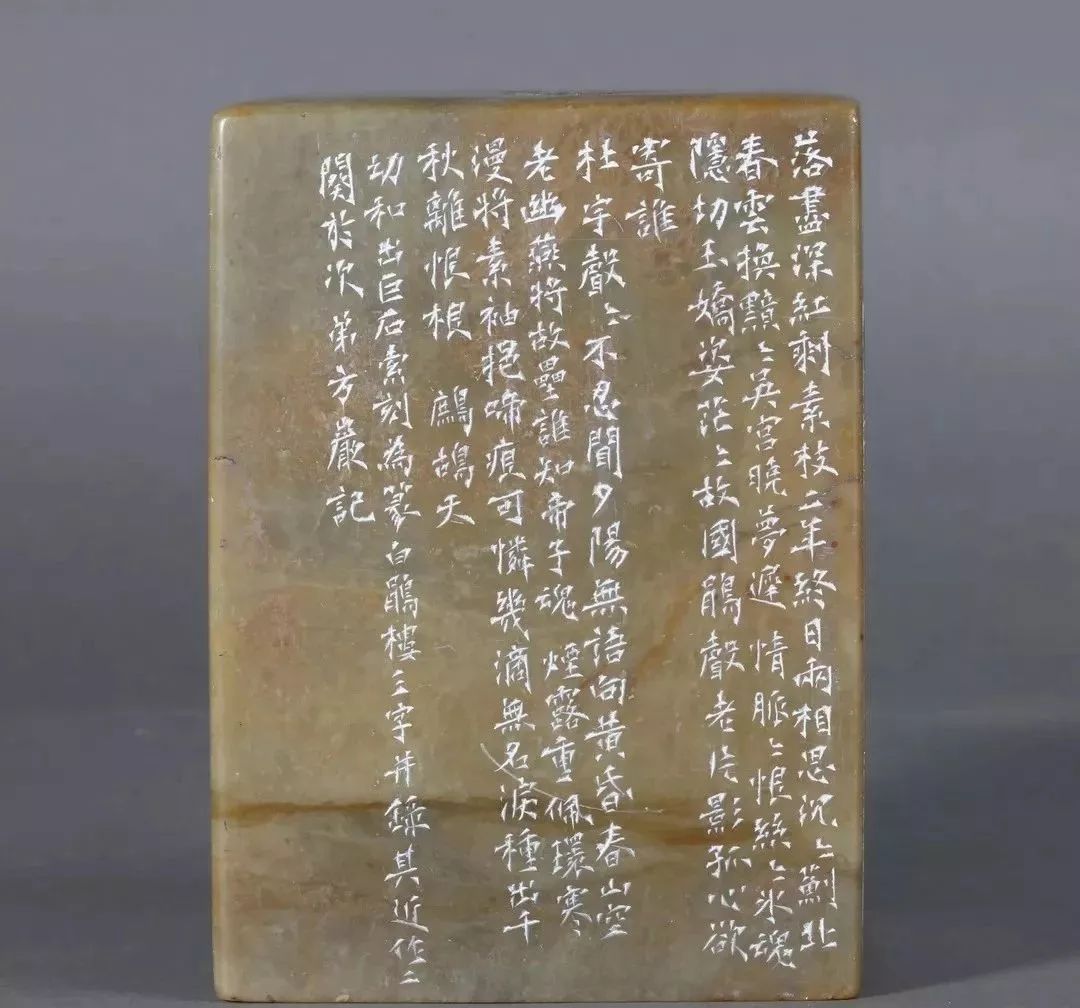 落盡深紅剩素枝二年終日兩相思沉〻薊北
春雲換黯〻吳宮晚夢遲 情脈〻恨絲〻氷魂
隱幻玉嬌姿茫〻故國鵑聲老片影孤心欲
寄誰
杜宇聲〻不忍聞夕陽無語向黃昏春山空
老幽燕將故壘誰知帝子魂 煙露重佩環寒
漫將素袖挹啼痕可憐幾滴無名淚種出千
秋離恨根 鷓鴣天
幼和出巨石索刻為篆白鵑樓三字并錄其近作二
闋於次 弟方巖記